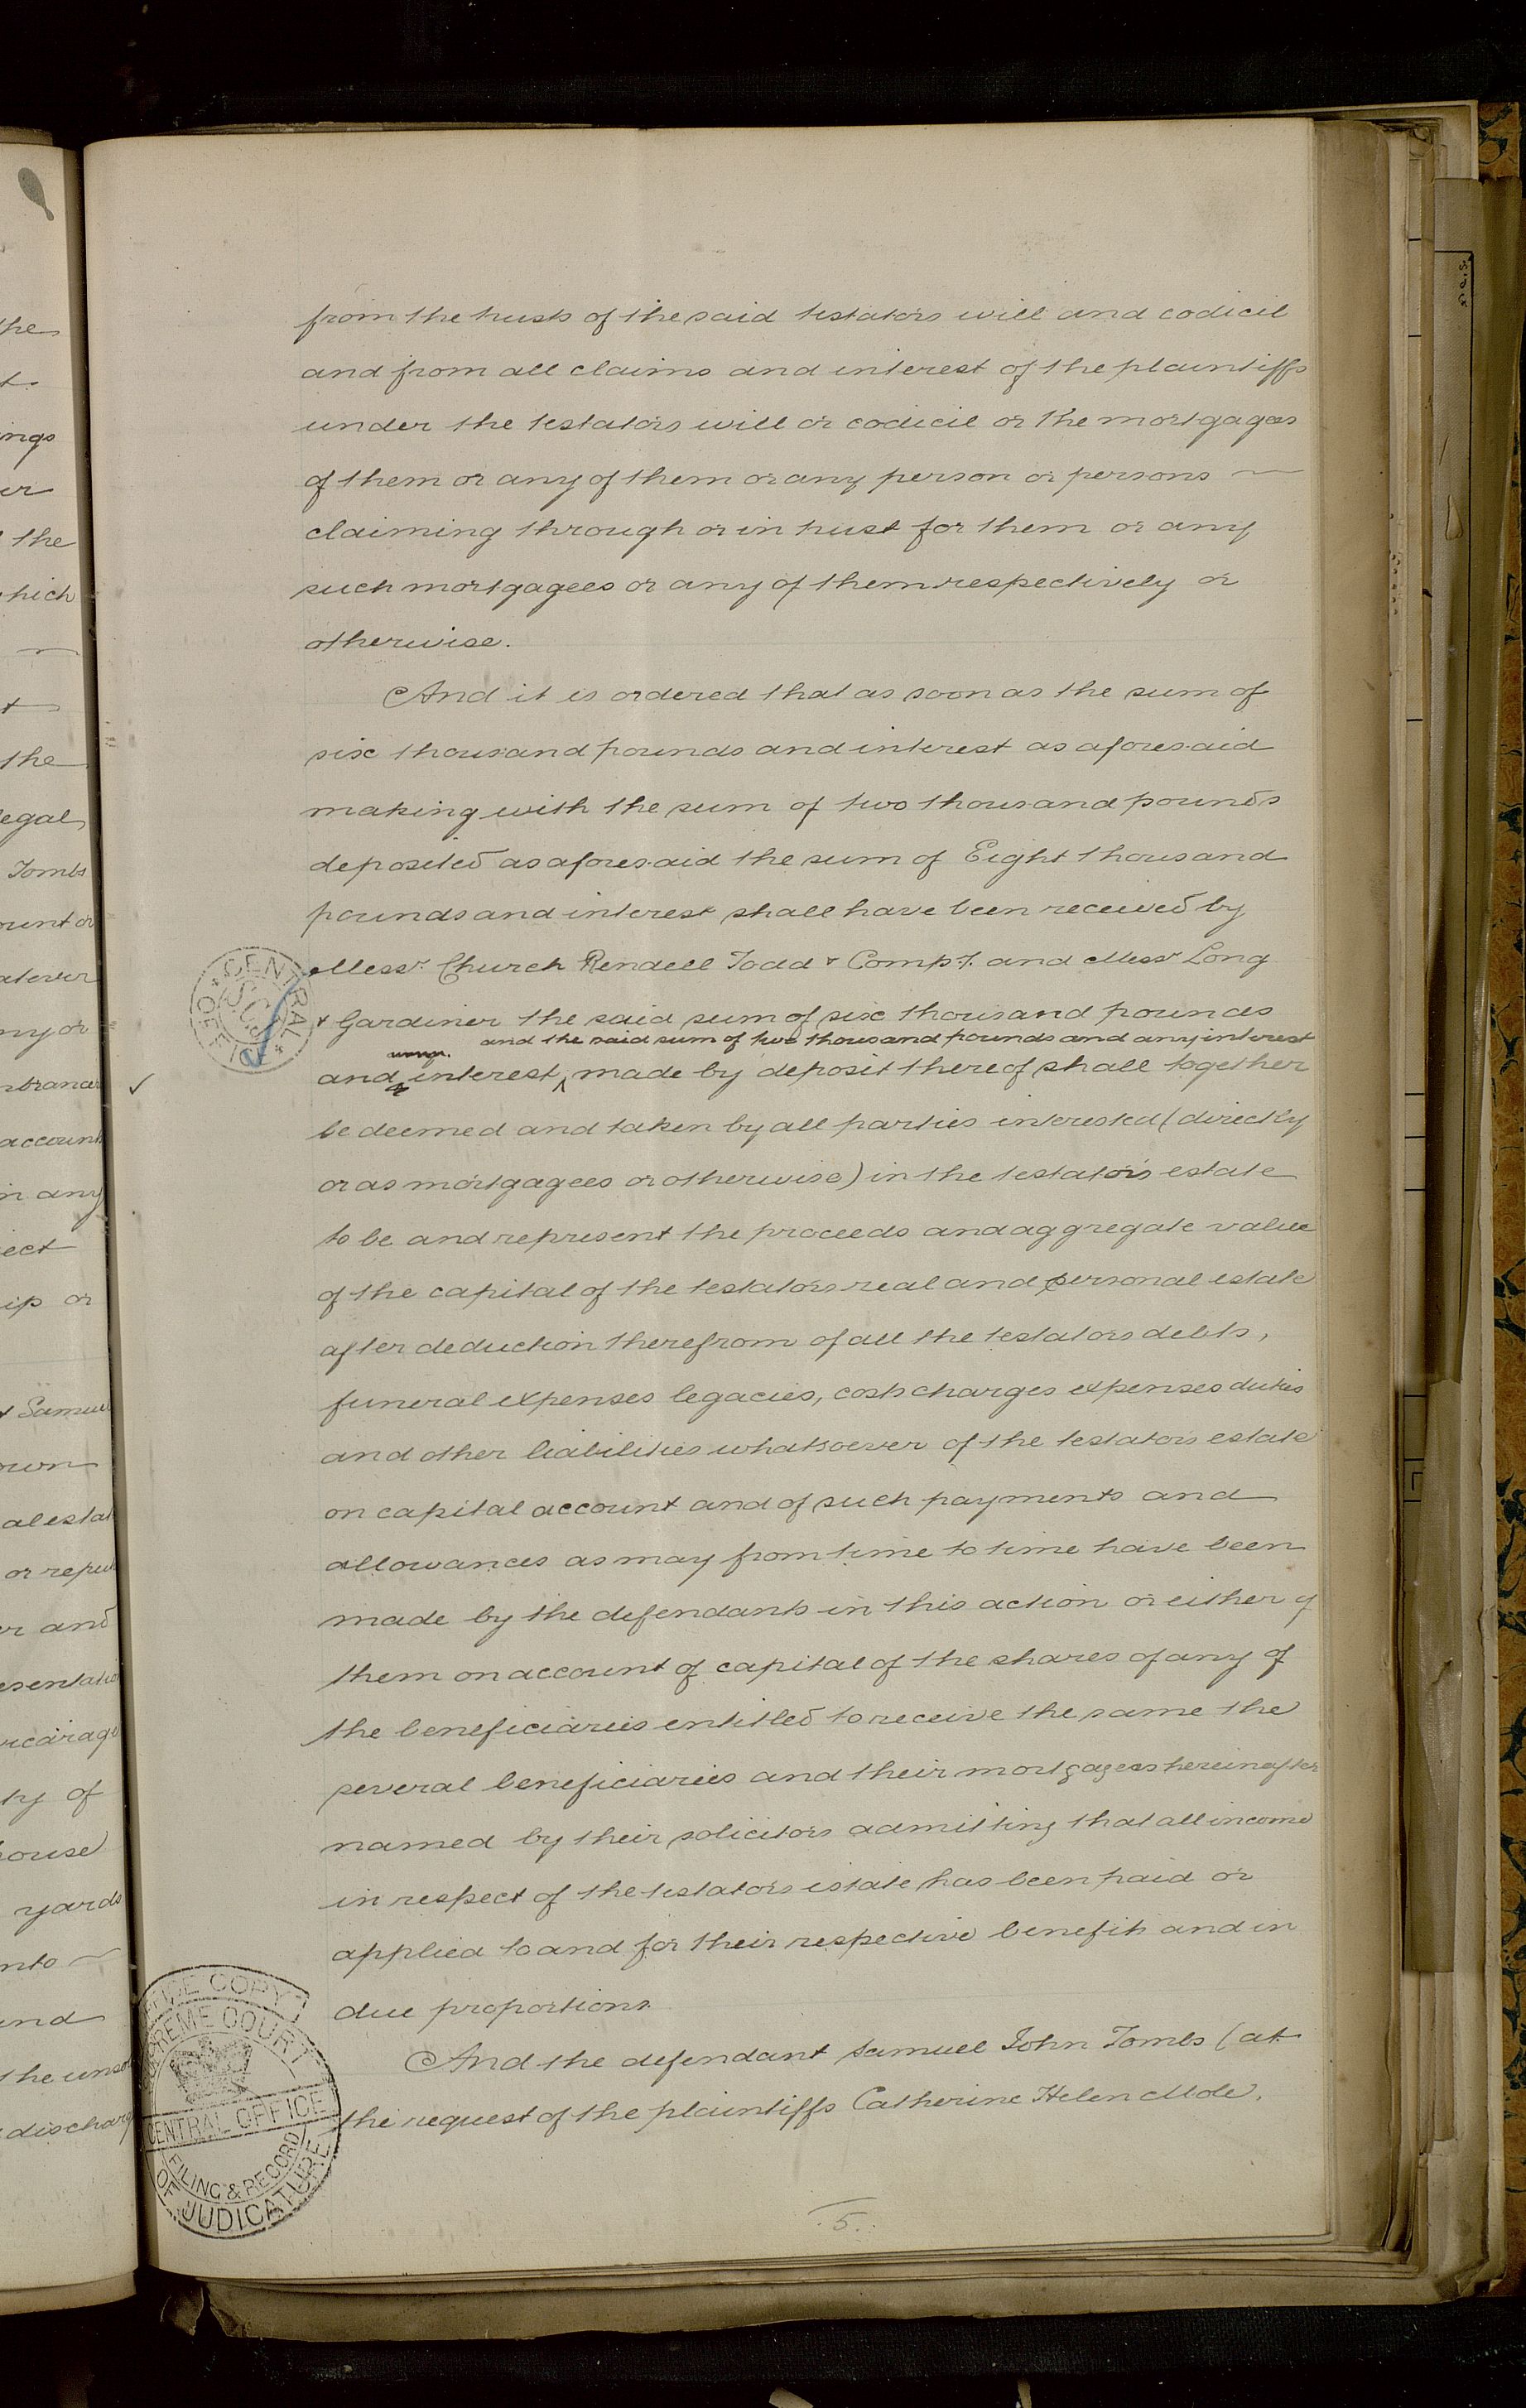 from the trusts of the said testators will and codicil
and from all claims and interest of the plaintiffs
under the testators will or codicil or the mortgagees
of them or any of them or any person or persons
claiming through or in trust for them or any
such mortgagees or any of them respectively or
otherwise.
And it is ordered that as soon as the sum of
six thousand pounds and interest as aforesaid
making with the sum of two thousand pounds
deposited as aforesaid the sum of Eight thousand
pounds and interest shall have been received by
Messrs. Church Rendell Todd & Compy. and Messrs Long
& Gardiner the said sum of six thousand pounds
and the said sum of two thousand pounds and any interest
and interest made by deposit thereof shall together
be deemed and taken by all parties interested (directly
or as mortgagees or otherwise) in the testators estate
to be and represent the proceeds and aggregate value
of the capital of the testators real and personal estate
after deduction therefrom of all the testators debts,
funeral expenses legacies, costs charges expenses duties
and other liabilities whatsoever of the testators estate
on capital account and of such payments and
allowances as may from time to time have been
made by the defendants in this action or either of
them on account of capital of the shares of any of
the beneficiaries entitled to receive the same the
several beneficiaries and their mortgagees hereinafter
named by their solicitors admitting that all income
in respect of the testators estate has been paid or
applied to and for their respective benefits and in
due proportions.
And the defendant Samuel John Tombs (at
the request of the plaintiffs Catherine Helen Mole,
5.
CENTRAL OFFICE
SCJ
OFFICE COPY
SUPREME COURT
CENTRAL OFFICE
FILING & RECORD
OF JUDICATURE
the
ings
er
the
which
the
legal
Tombs
ount or
atever
ny or
mbrances
account
in any
ect
ip or
& Samuel
own
al estat
or repu
er and
esentatio
vicarage
ty of
house
yards
nto
and
the unso
discharg